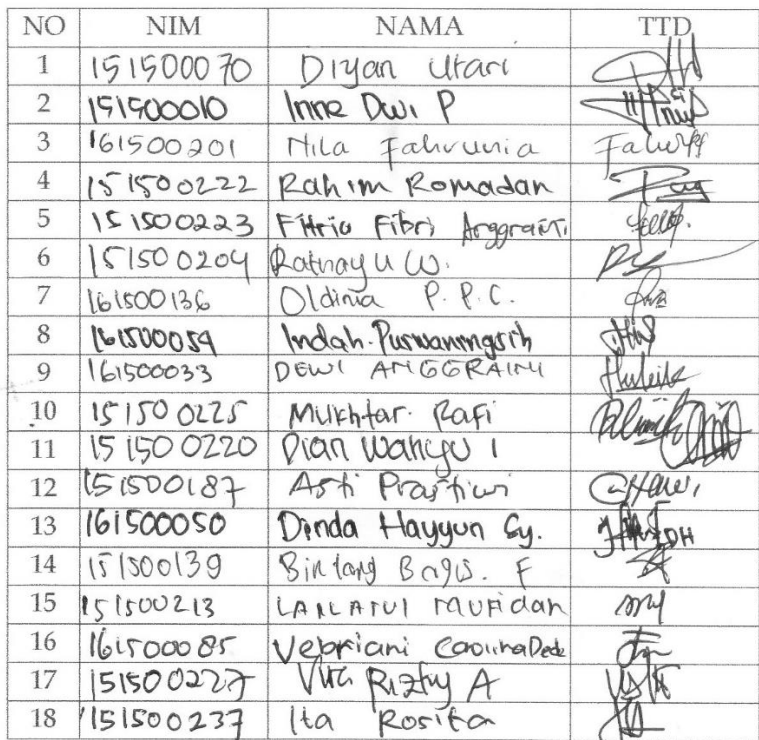 NO NIM NAMA TTD
1 151500070 Diyan Utari
2 151500010 Inne Dwi P
3 161500201 Nila Fahrunia
4 151500222 Rahim Romadan
5 151500223 Fitria Fibri Anggraini
6 151500204 Ratnayu W.
7 161500136 Oldinia P. P. C.
8 161500054 Indah Purwaningsih
9 161500033 DEWI ANGGRAINI
10 151500225 Mukhtar Rafi
11 151500220 Dian Wahyu I
12 151500187 Asti Prastiwi
13 161500050 Dinda Hayyun Sy.
14 151500139 Bintang Bagus. F
15 151500213 LAILATUL MUFIDAH
16 161500085 Vebriani Carolina Dede
17 151500227 Vita Rizky A
18 151500237 Ita Rosita